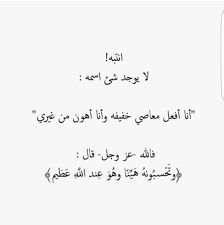 انتبه!
لا يوجد شئ اسمه :
"أنا أفعل معاصي خفيفه وأنا أهون من غيري"
فالله -عز وجل- قال :
﴿وَتَحْسَبُونَهُ هَيِّنًا وَهُوَ عِندَ اللَّهِ عَظِيم﴾